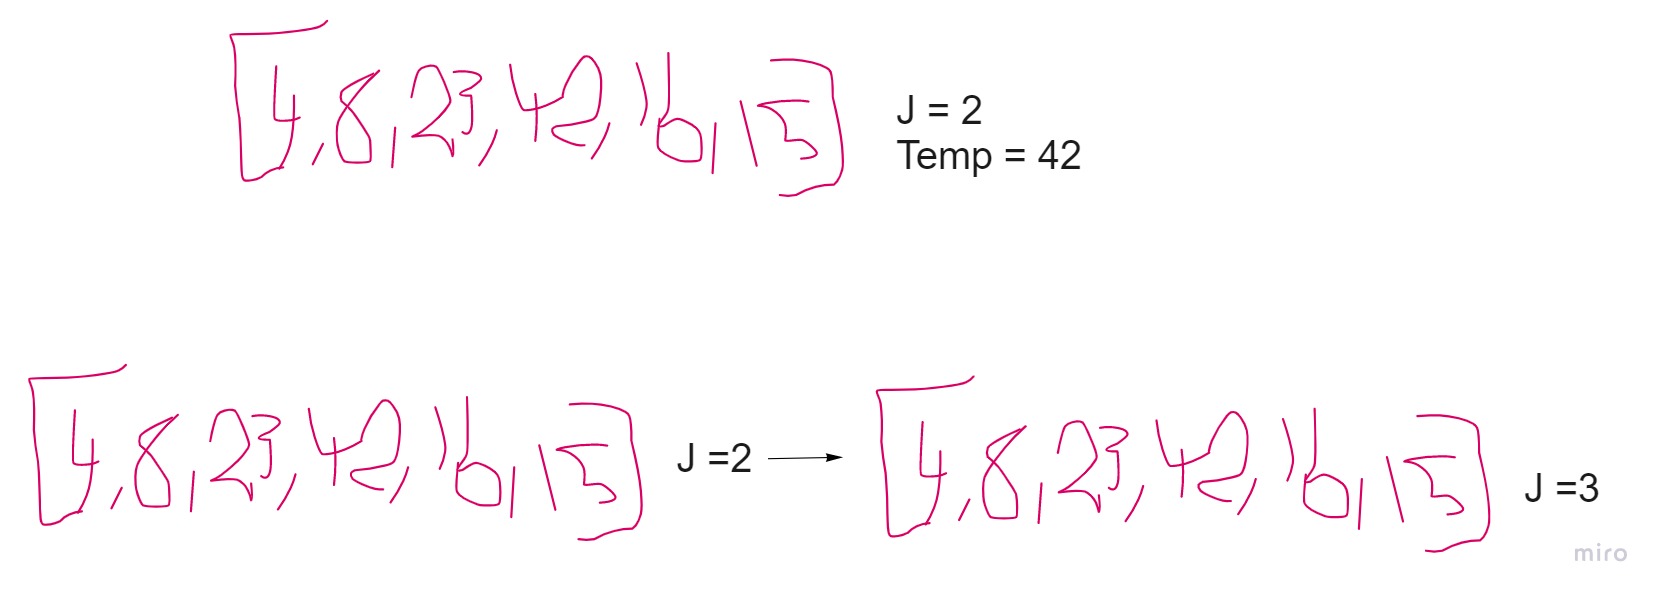 [4,8,23,42,16,15]
J = 2
Temp = 42
[4,8,23,42,16,15]
J =2
[4,8,23,42,16,15]
J =3
miro